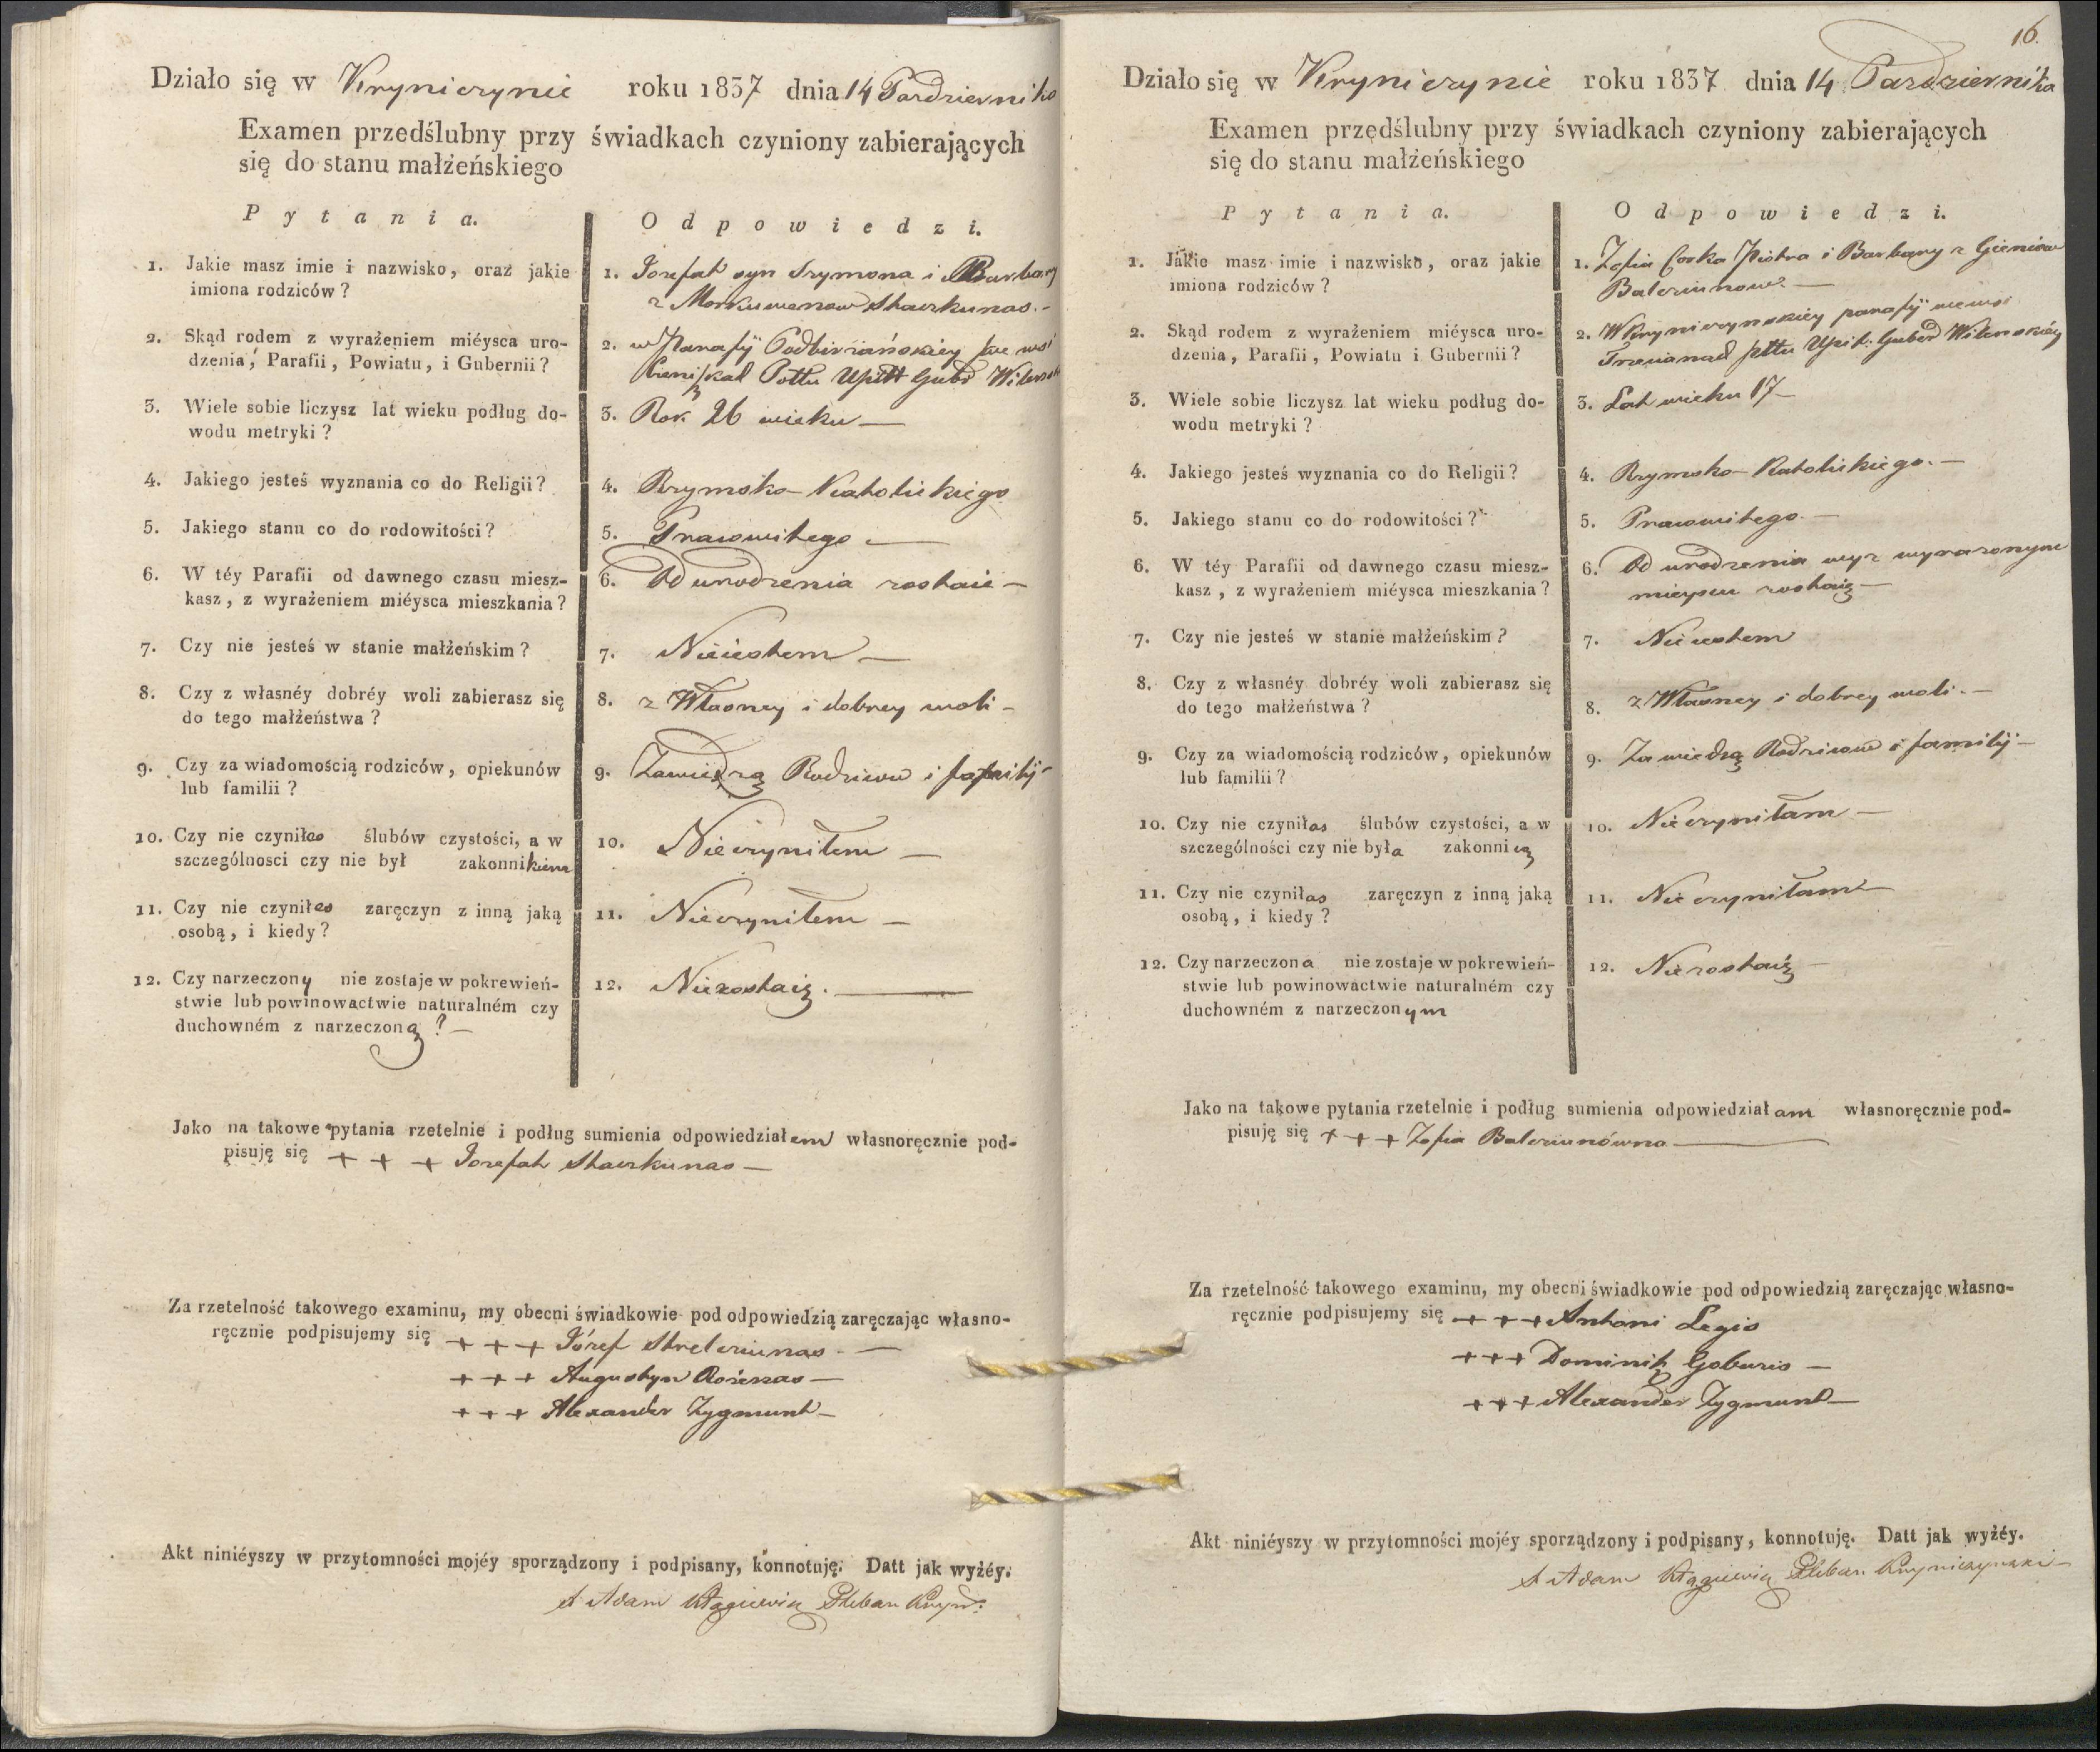 Działo się w Kryniczynie roku 1837 dnia 14 Pazdziernika
Examen przedślubny przy świadkach czyniony zabierających
się do stanu małżeńskiego
Pytania.
Odpowiedzi.
1. Jakie masz imie i nazwisko, oraz jakie
imiona rodziców?
1. Jozefat syn Szymona i Barbary
z Morkunanow Staczkunas.-
2. Skąd rodem z wyrażeniem miéysca uro-
dzenia, Parafii, Powiatu, i Gubernii?
2. w Parafij Podbirżańskiey we wsi
Pottu Upitt Gub Wilensk
3. Wiele sobie liczysz lat wieku podług do-
wodu metryki?
3. Rok 26 wieku —
4. Jakiego jesteś wyznania co do Religii?
4. Rzymsko-Katolickiego
5. Jakiego stanu co do rodowitości?
5. Prawowitego —
6. W téy Parafii od dawnego czasu miesz-
kasz, z wyrażeniem miéysca mieszkania?
6. Od urodzenia zostaie —
7. Czy nie jesteś w stanie małżeńskim?
7. Nieiestem —
8. Czy z własnéy dobréy woli zabierasz się
do tego małżeństwa?
8. z Własney i dobrey woli —
9. Czy za wiadomością rodziców, opiekunów
lub familii?
9. Zawiedzą Rodzicow i familij -
10. Czy nie czyniłes ślubów czystości, a w
szczególnosci czy nie był zakonnikiem
10. Nieczyniłem —
11. Czy nie czyniłes zaręczyn z inną jaką
osobą, i kiedy?
11. Nieczyniłem —
12. Czy narzeczony nie zostaje w pokrewień-
stwie lub powinowactwie naturalném czy
duchowném z narzeczoną? —
12. Niezostaię. —
Jako na takowe pytania rzetelnie i podług sumienia odpowiedziałem własnoręcznie pod-
pisuję się + + + Jozefat Staczkunas —
Za rzetelność takowego examinu, my obecni świadkowie pod odpowiedzią zaręczając własno-
ręcznie podpisujemy się + + + Józef Strelciunas —
+ + + Augustyn Rożenas —
+ + + Alexander Zygmunt —
Akt niniéyszy w przytomności mojéy sporządzony i podpisany, konnotuję. Datt jak wyżéy.
X Adam Pleban Kryn:
16.
Działo się w Kryniczynie roku 1837 dnia 14 Pazdziernika
Examen przedślubny przy świadkach czyniony zabierających
się do stanu małżeńskiego
Pytania.
Odpowiedzi.
1. Jakie masz imie i nazwisko, oraz jakie
imiona rodziców?
1. Zofia Corka Piotra i Barbary z Gieniow
Balcziunow. —
2. Skąd rodem z wyrażeniem miéysca uro-
dzenia, Parafii, Powiatu i Gubernii?
2. W Kryniczynskiey parafij we wsi
pttu Upit. Guber Wilenskiéy
3. Wiele sobie liczysz lat wieku podług do-
wodu metryki?
3. Lat wieku 17 —
4. Jakiego jesteś wyznania co do Religii?
4. Rzymsko-Katolickiego. —
5. Jakiego stanu co do rodowitości?
5. Prawowitego. —
6. W téy Parafii od dawnego czasu miesz-
kasz, z wyrażeniem miéysca mieszkania?
6. Od urodzenia wyz wyrazonym
mieyscu zostaię —
7. Czy nie jesteś w stanie małżeńskim?
7. Nieiestem
8. Czy z własnéy dobréy woli zabierasz się
do tego małżeństwa?
8. z Własney i dobrey woli. —
9. Czy za wiadomością rodziców, opiekunów
lub familii?
9. Zawiedzą Rodzicow i familij —
10. Czy nie czyniłas ślubów czystości, a w
szczególności czy nie była zakonnicą
10. Nieczyniłam —
11. Czy nie czyniłas zaręczyn z inną jaką
osobą, i kiedy?
11. Nieczyniłam —
12. Czy narzeczona nie zostaje w pokrewień-
stwie lub powinowactwie naturalném czy
duchowném z narzeczonym
12. Niezostaię —
Jako na takowe pytania rzetelnie i podług sumienia odpowiedziałam własnoręcznie pod-
pisuję się + + + Zofia Balcziunówna —
Za rzetelność takowego examinu, my obecni świadkowie pod odpowiedzią zaręczając własno-
ręcznie podpisujemy się + + + Antoni Legis
+++ Dominik Goburis —
+++ Alexander Zygmunt —
Akt niniéyszy w przytomności mojéy sporządzony i podpisany, konnotuję. Datt jak wyżéy.
X Adam Pleban Kryniczynski —